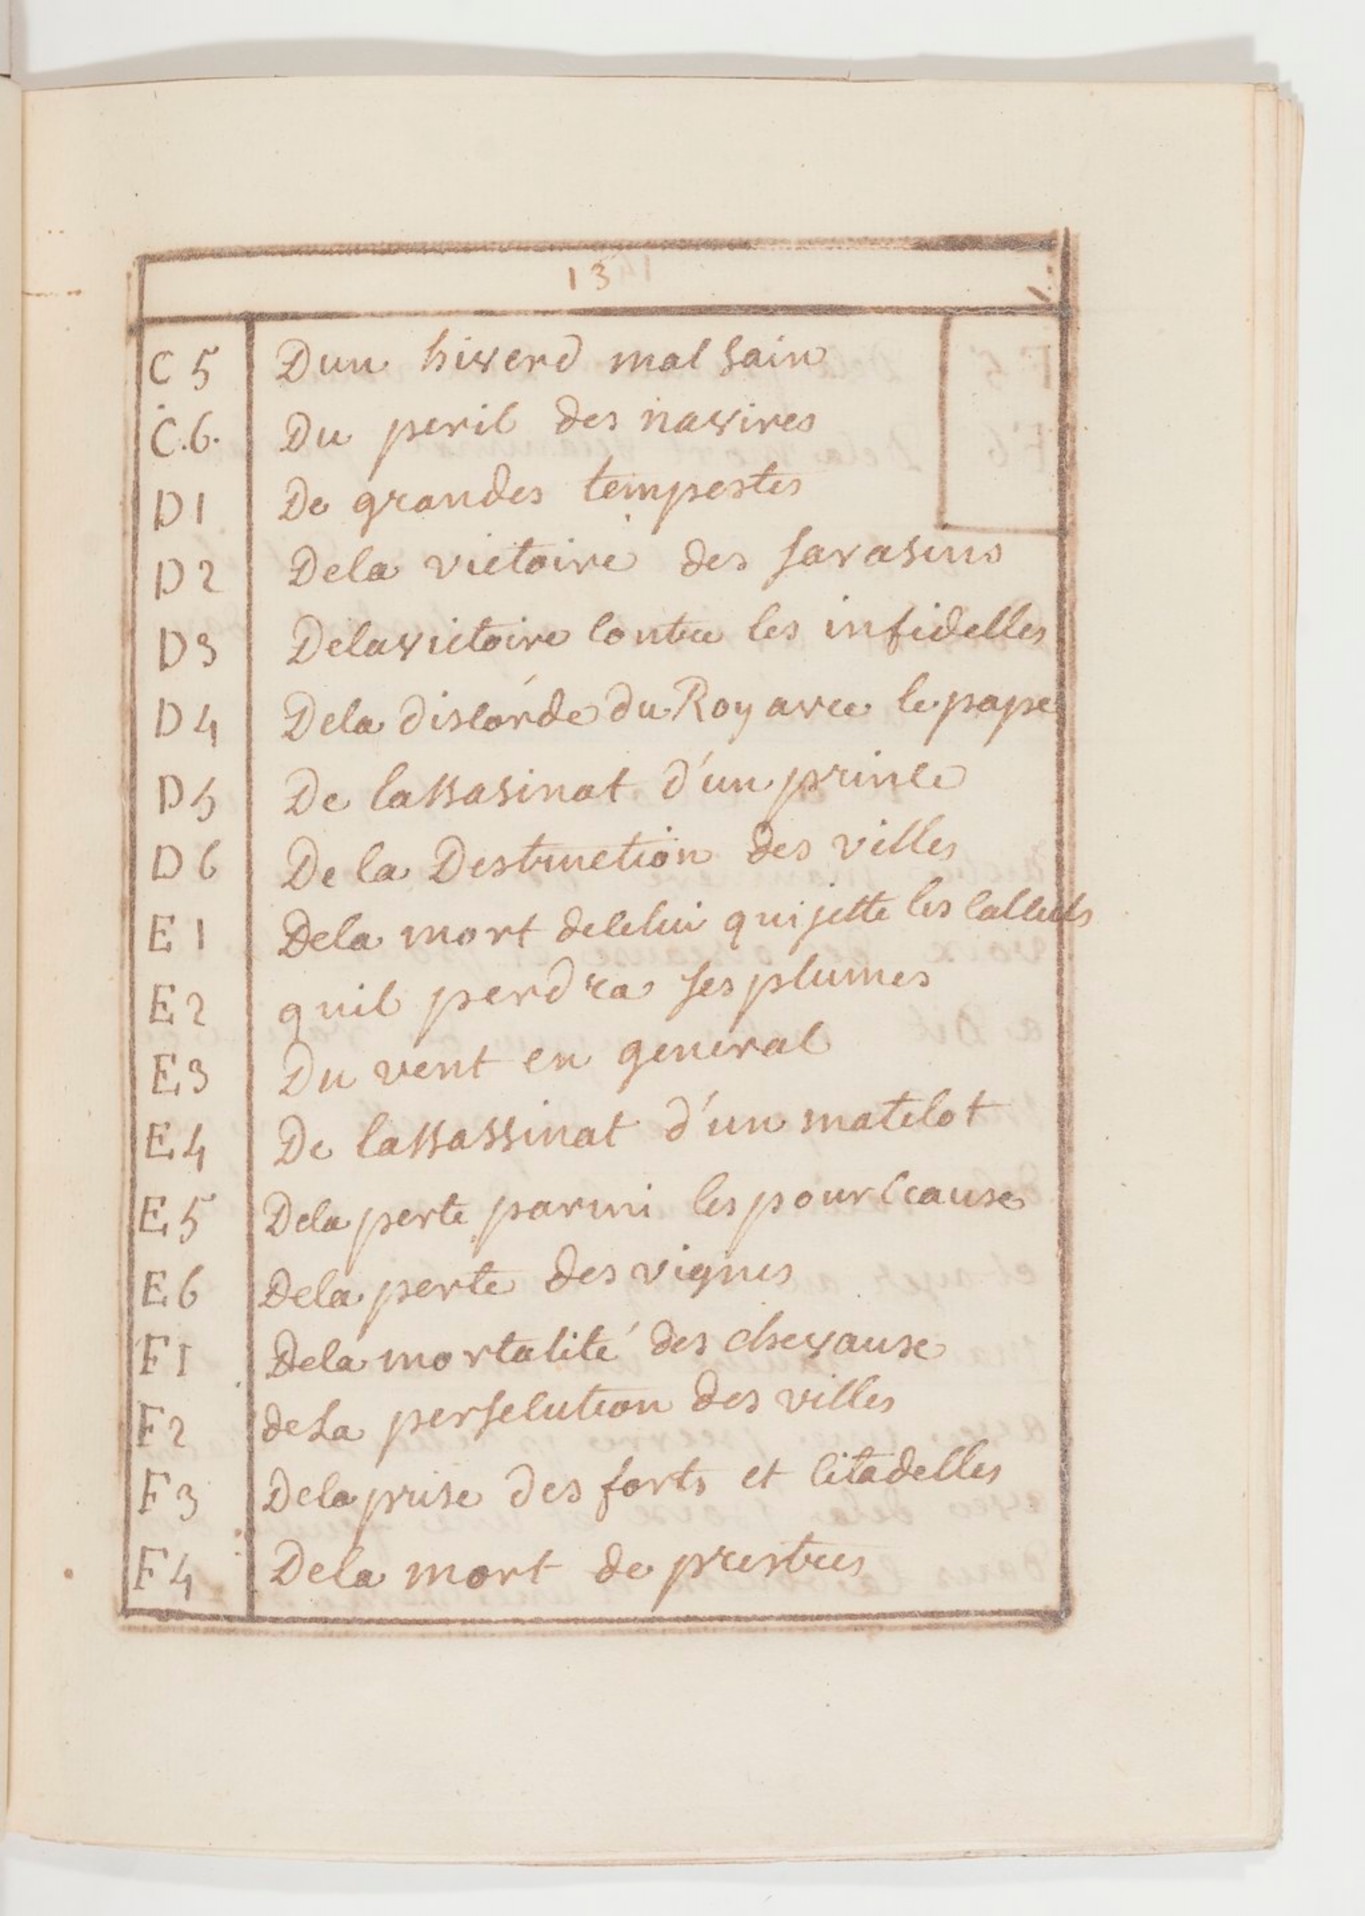 13
C 5 Dun hiverd mal sain
C.6. Du peril des navires
D1 De grandes tempestes
D2 Dela victoire des sarasins
D3 Delavictoire contre les infidelles
D4 Dela discorde du Roy avec le pape
D5 De lassasinat d'un prince
D6 De la Destruction des villes
E1 Dela mort decelui qui jette les calculs
E2 quil perdra ses plumes
E3 Du vent en general
E4 De lassassinat d'un matelot
E5 Dela perte parmi les pourceause
E6 Dela perte des vignes
F1 Dela mortalité des chevause
F2 dela persecution des villes
F3 Dela prise des forts et citadelles
F4 Dela mort de prestres